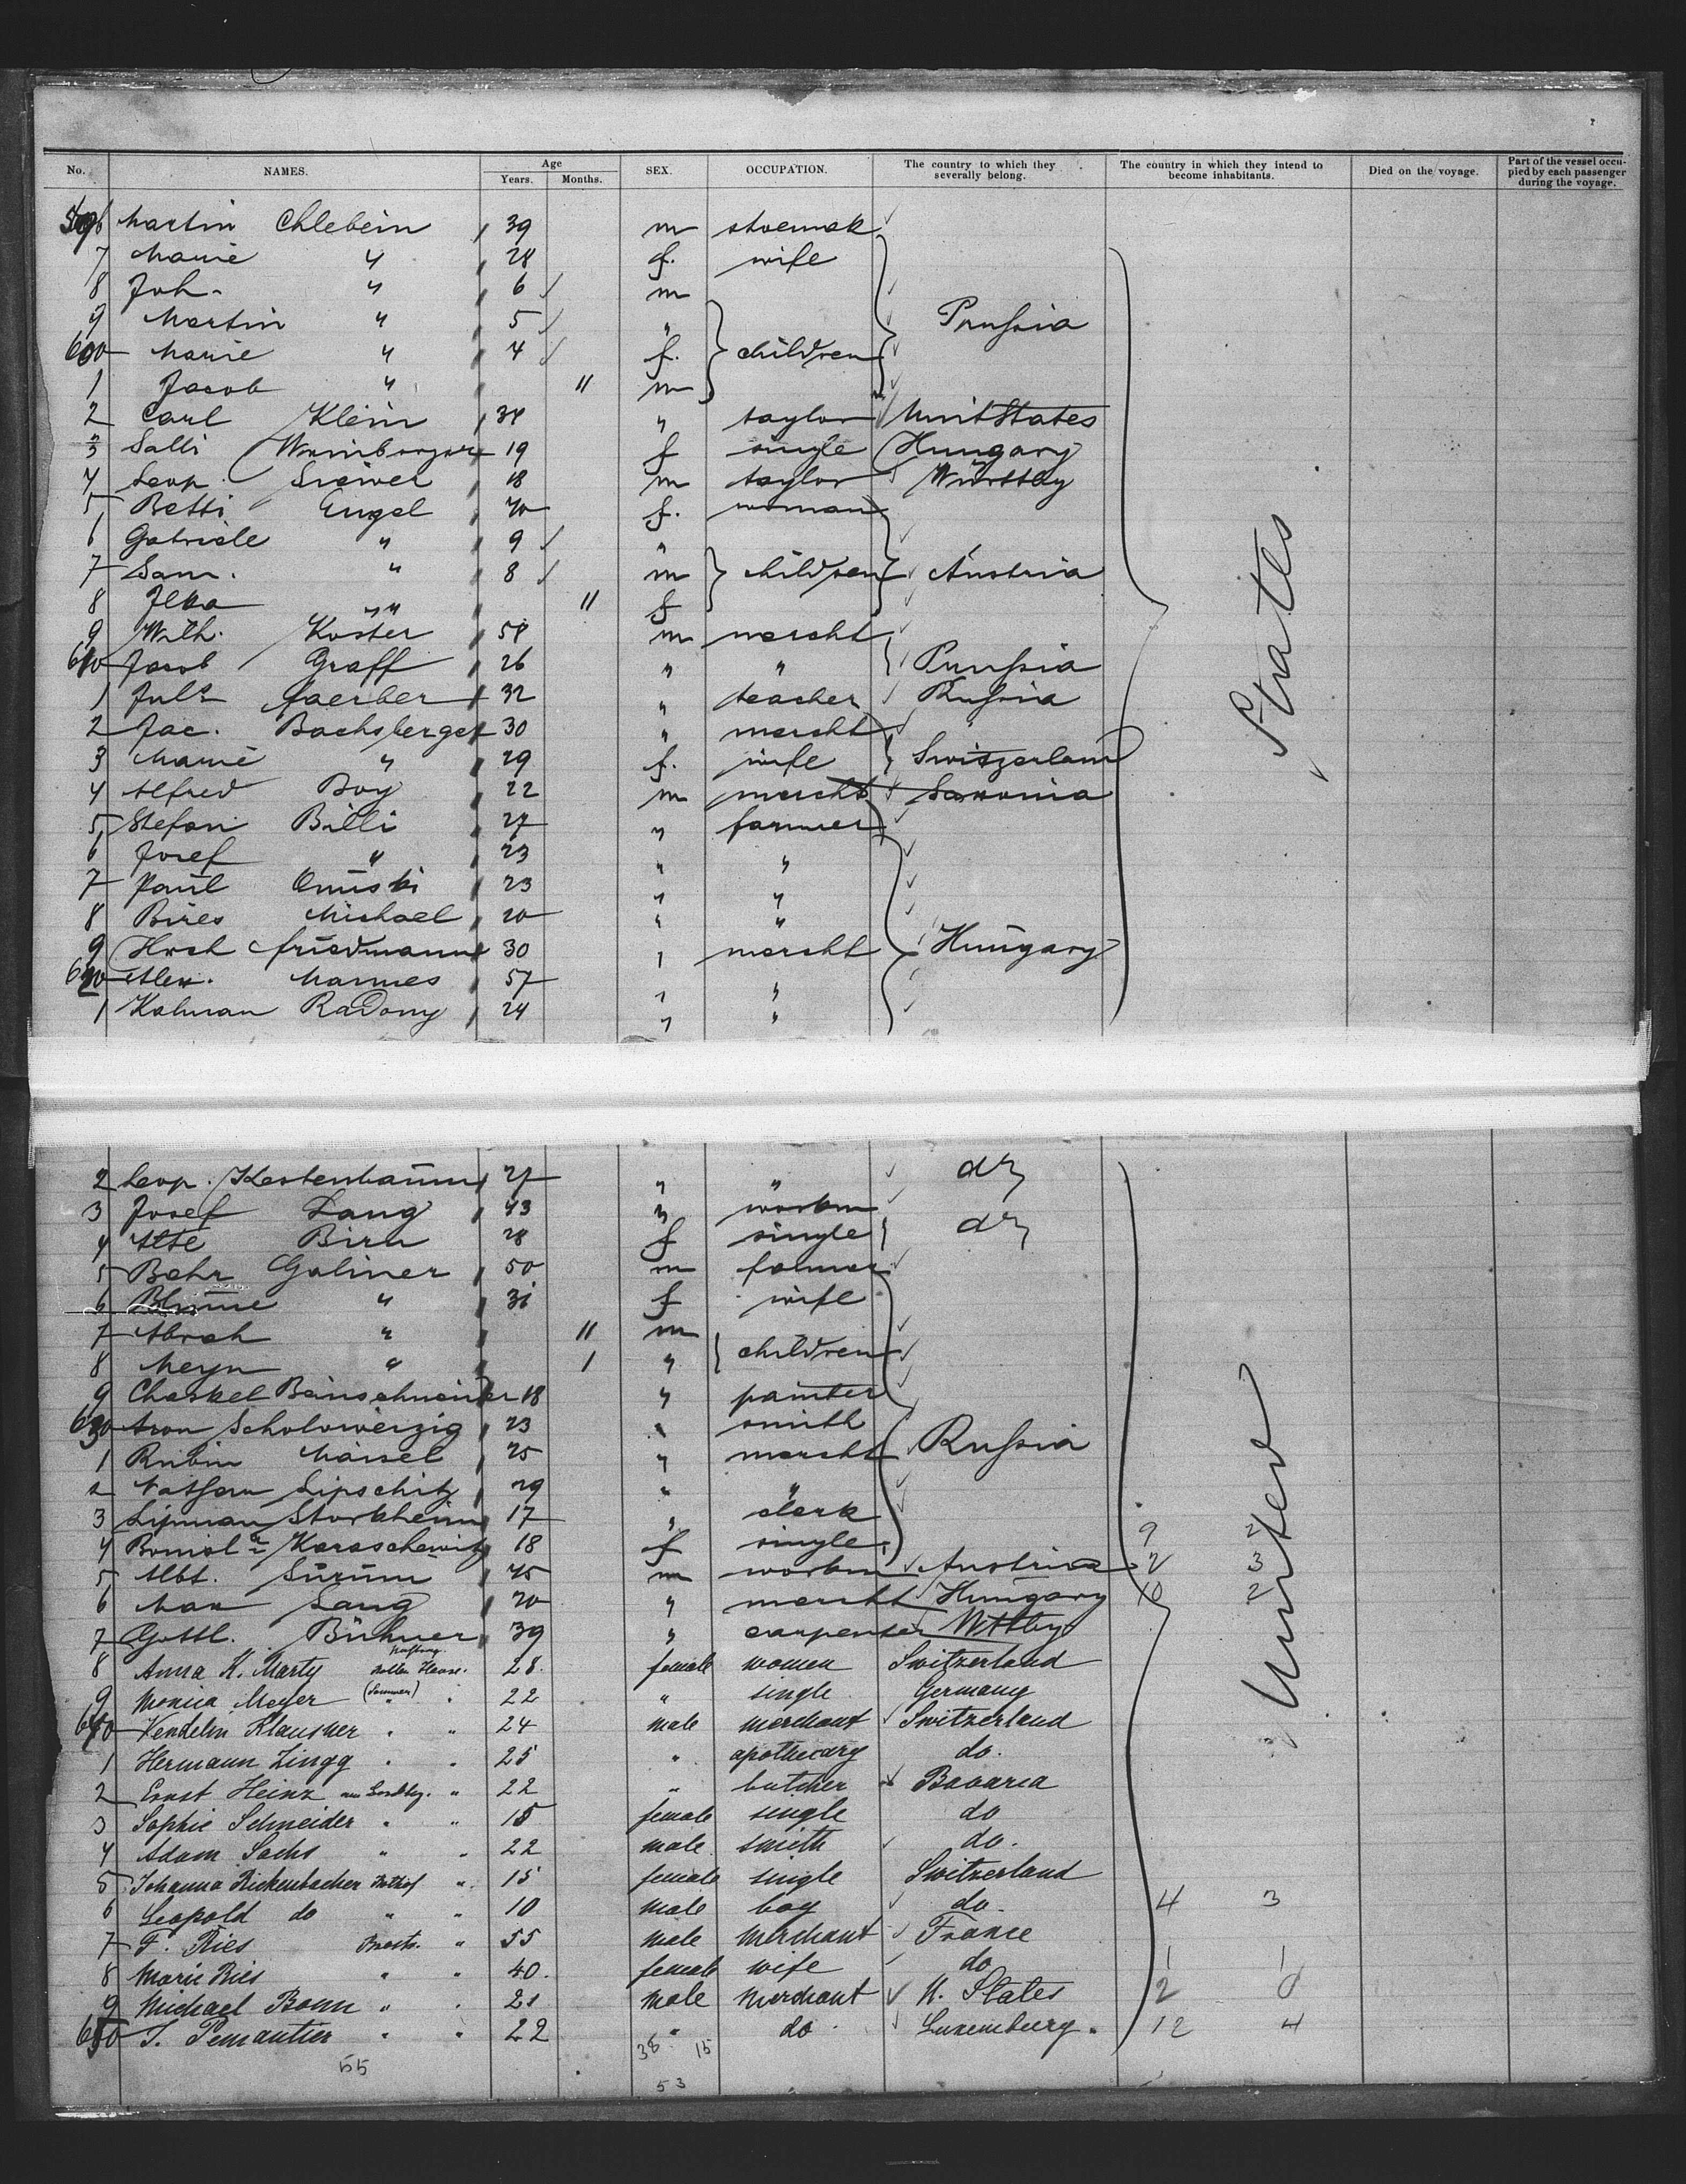 No. NAMES. Age Years. Months. SEX. OCCUPATION. The country to which they severally belong. The country in which they intend to become inhabitants. Died on the voyage. Part of the vessel occupied by each passenger during the voyage.
596 Martin Chlebein 39 m shoemak
7 Marie " 28 f. wife
8 Joh. " 6 m
9 Martin " 5 " Prussia
600 Marie " 4 f. children
1 Jacob " 11 m
2 Carl Klein 34 " taylor UnitStates
3 Salli 19 f single Hungary
4 Leop. 18 m taylor Württbg
5 Betti Engel 40 f. woman
6 Gabriele " 9 "
7 Sam. " 8 m children Austria
8 Ilka " 11 f
9 Wilh. Köster 58 m marcht
610 Jacob Graff 26 " " Prussia
1 Juls Faerber 32 " teacher Russia
2 Jac. Bachsberger 30 " marcht
3 Marie " 29 f. wife Switzerland
4 Alfred Boy 22 m marcht Saxonia
5 Stefan Billi 27 " farmer
6 Josef " 23 " "
7 Paul 23 " "
8 Bires Michael 20 " "
9 Hrsch Friedmann 30 " marcht Hungary
620 Alex. Mannes 57 " "
1 Kalman Radony 24 " "
States
2 Leop. Kestenbaum 27 " " do
3 Josef Lang 43 " workm
4 Birn 28 f single do
5 Behr Galiner 50 m farmer
6 Blume " 31 f wife
7 Abrah " 11 m
8 Meyn " 1 " children
9 Chaskel 18 " painter
630 Aron 23 " smith
1 Rubin Maisel 25 " marcht Russia
2 Nathan Lipschitz 29 " "
3 Lipman Storkheim 17 " clerk
4 18 f single 9 2
5 Albt. 45 m workm Austria 2 3
6 Max Lang 20 " marcht Hungary 10 2
7 Gottl. Bühner 39 " carpenter Wttbg
8 Anna K. Marty 28. female women Switzerland
9 Monica Meyer " 22 " single Germany
640 Wendelin Klausner " " 24 male merchant Switzerland
1 Hermann Zingg " " 25 " apothecary do.
2 Ernst Heinz " 22 " butcher Bavaria
3 Sophie Schneider " " 18 female single do
4 Adam Sachs " " 22 male smith do.
5 Johanna Rickenbacher " 15 female single Switzerland
6 Leopold do " " 10 male boy do. 4 3
7 F. Ries " 55 male merchant France
8 Marie Ries " " 40. female wife do 1 1
9 Michael Bonn " " 21 male merchant U. States 2 0
650 J. Pemantier " " 22 " do Luxemburg. 12 4
United
55 38 15
53